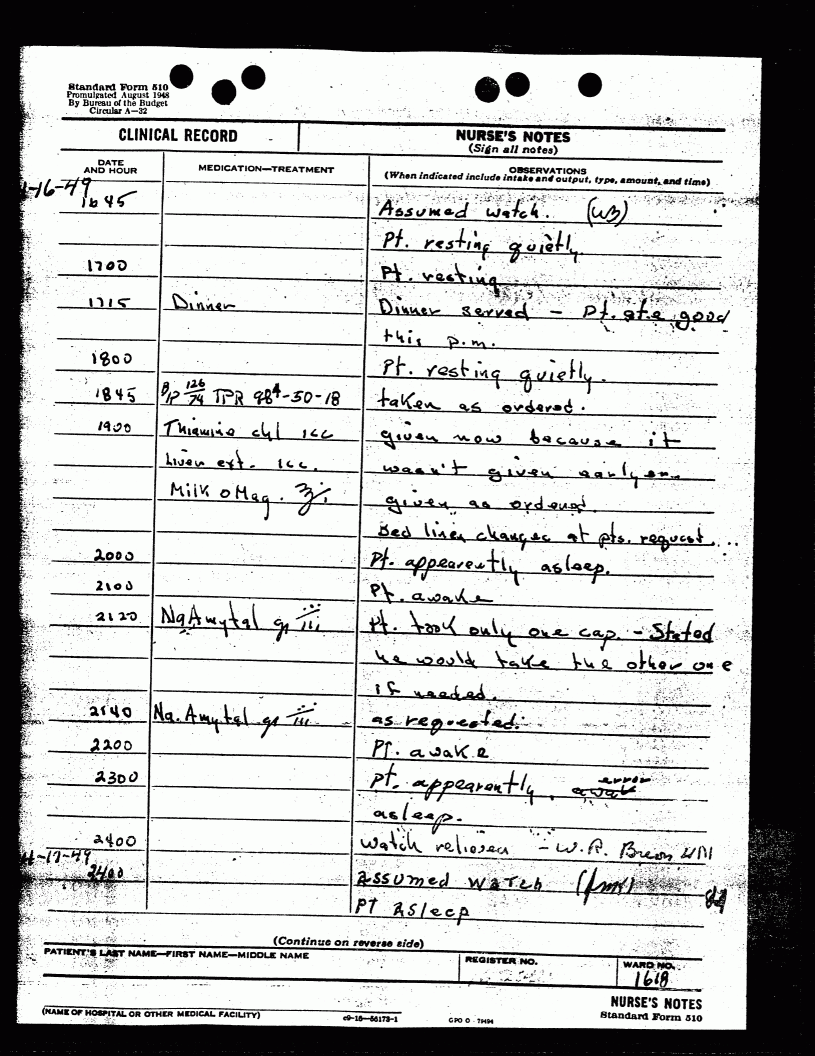 Standard Form 510
Promulgated August 1948
By Bureau of the Budget
Circular A—32
CLINICAL RECORD
NURSE'S NOTES
(Sign all notes)
DATE AND HOUR
MEDICATION—TREATMENT
OBSERVATIONS
(When indicated include intake and output, type, amount, and time)
-16-49
1645 Assumed watch. (WB)
Pt. resting quietly
1700 Pt. resting
1715 Dinner Dinner served — Pt. ate good
this p.m.
1800 Pt. resting quietly.
1845 B/P 126/74 TPR 98⁴-50-18 taken as ordered.
1900 Thiamine chl 1cc given now because it
Liver ext. 1cc. wasn't given earlyer.
Milk o Mag. given as ordered.
Bed linen changes at pts. request...
2000 Pt. appearently asleep.
2100 Pt. awake
2120 Na Amytal gr iii Pt. took only one cap. — Stated
he would take the other one
if needed.
2140 Na. Amytal gr iii as requested.
2200 Pt. awake
2300 Pt. appearently, awak error
asleep.
2400 Watch relieved — W.R.
4-17-49
2400 Assumed watch
PT Asleep
84
(Continue on reverse side)
PATIENT'S LAST NAME—FIRST NAME—MIDDLE NAME
REGISTER NO.
WARD NO.
1618
(NAME OF HOSPITAL OR OTHER MEDICAL FACILITY)
c9-16—56173-1
GPO O - 79494
NURSE'S NOTES
Standard Form 510